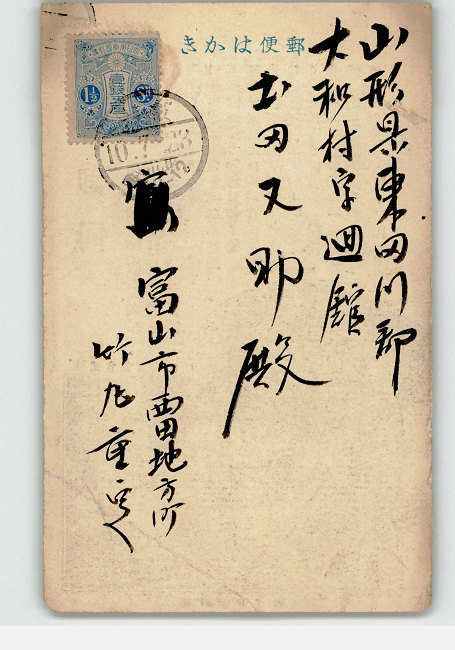 郵便はかき
山形県東田川郡
大和村字廻館
土田又助殿
富山市西田地方町
竹
重
1½
Sn
10.7.23